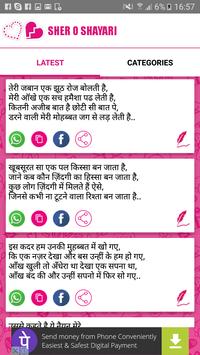 16:57
SHER O SHAYARI
LATEST
CATEGORIES
तेरी जबान एक झूठ रोज बोलती है,
मेरी आँखे एक सच हमेशा पढ लेती है,
कितनी अजीब बात है छोटी सी बात पे,
डरने वाली मेरी मोहब्बत जग से लड़ लेती है..
खूबसूरत सा एक पल किस्सा बन जाता है,
जाने कब कौन ज़िंदगी का हिस्सा बन जाता है,
कुछ लोग ज़िंदगी में मिलते हैं ऐसे,
जिनसे कभी ना टूटने वाला रिश्ता बन जाता है..
इस कदर हम उनकी मुहब्बत में खो गए,
कि एक नज़र देखा और बस उन्हीं के हम हो गए,
आँख खुली तो अँधेरा था देखा एक सपना था,
आँख बंद की और उन्हीं सपनो में फिर सो गए..
Send money from Phone Conveniently
Easiest & Safest Digital Payment